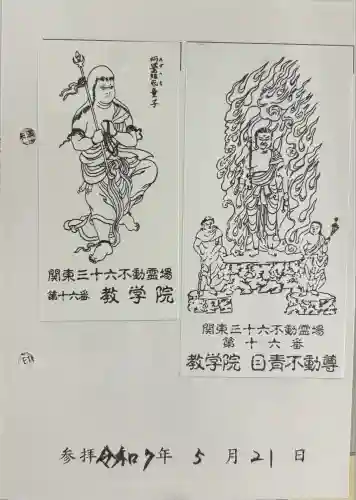 関東三十六不動霊場
第十六番 教学院
関東三十六不動霊場
第十六番
教学院 目青不動尊
参拝 令和7年 5月21日